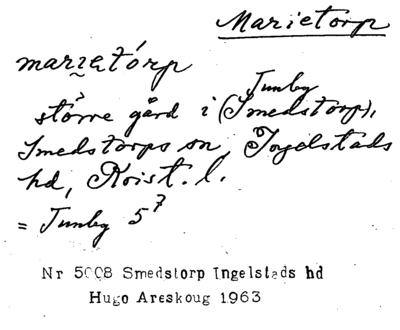 Marietorp
marietórp
Tunby
större gård i (Smedstorp),
Smedstorps sn, Ingelstads
hd, Krist. l.
= Tunby 5⁷
Nr 5008 Smedstorp Ingelstads hd
Hugo Areskoug 1963